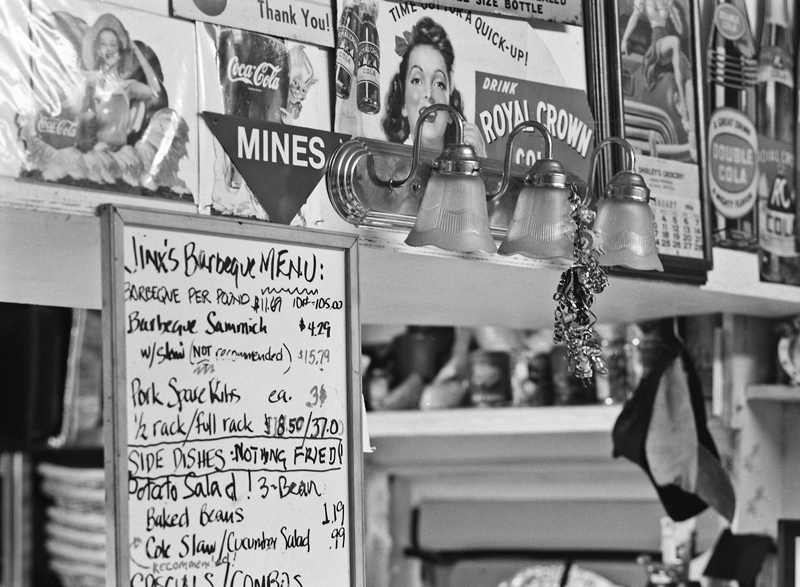 Thank You!
SIZE BOTTLE
TIME OUT FOR A QUICK-UP!
Coca-Cola
Coca-Cola
DRINK
ROYAL CROWN
MINES
DOUBLE
COLA
COLA
Jinx's Barbeque MENU:
BARBEQUE PER POUND $11.69 10#-105.00
Barbeque Sammich $4.29
w/slaw (NOT recommended) $15.79
Pork Spare Ribs ea. 3$
1/2 rack/full rack $18.50/37.00
SIDE DISHES-NOTHING FRIED!
Potato Salad! 3-Bean
Baked Beans 1.19
Cole Slaw/Cucumber Salad .99
RECOMMENDED!
SPECIALS/COMBOS